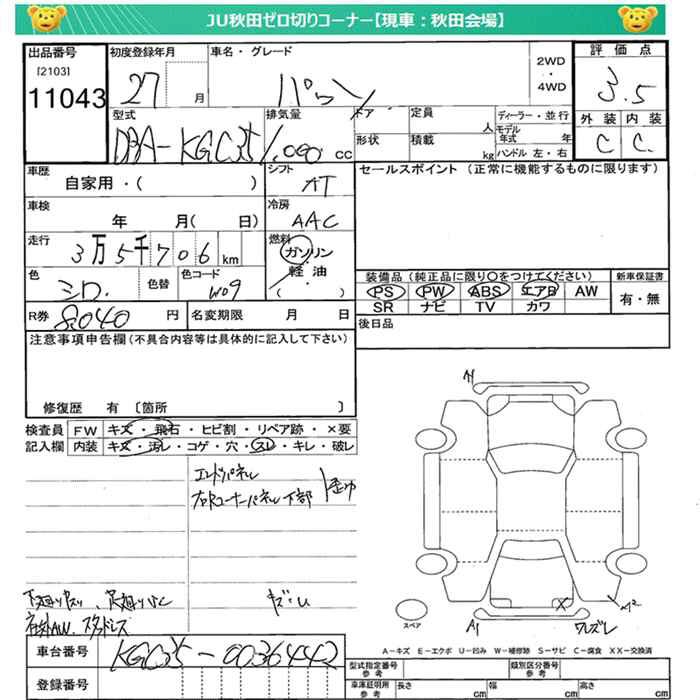 JU秋田ゼロ切りコーナー【現車：秋田会場】
出品番号
[2103]
11043
初度登録年月
27
月
車名・グレード
パッソ
2WD
・
4WD
評価点
3.5
外装 内装
C C
型式
DBA-KGC35
排気量
1,000 cc
ドア
形状
定員
人
積載
kg
ディーラー・並行
モデル年式 年
ハンドル 左・右
車歴
自家用・( )
シフト
AT
車検
年 月( 日)
冷房
AAC
走行
3万5千706km
燃料
ガソリン
軽・油
( )
色
色替
色コード
W09
R券
8040円
名変期限 月 日
セールスポイント (正常に機能するものに限ります)
装備品 (純正品に限り○をつけてください)
PS PW ABS エアB AW
SR ナビ TV カワ
新車保証書
有・無
後日品
注意事項申告欄(不具合内容等は具体的に記入して下さい)
修復歴 有 〔箇所 〕
検査員記入欄
FW キズ・飛石・ヒビ割・リペア跡・×要
内装 キズ・汚レ・コゲ・穴・スレ・キレ・破レ
エンドパネル
右Rコーナーパネル下部
歪み
下廻りサビ、足廻りサビ
キズ・凹
社外AW、スタッドレス
スペア
A1
A1
X
A2
ワレズレ
A－キズ E－エクボ U－凹み W－補修跡 S－サビ C－腐食 XX－交換済
車台番号
KGC35-0036442
登録番号
型式指定番号 参考
類別区分番号 参考
車庫証明用 参考
長さ cm
幅 cm
高さ cm